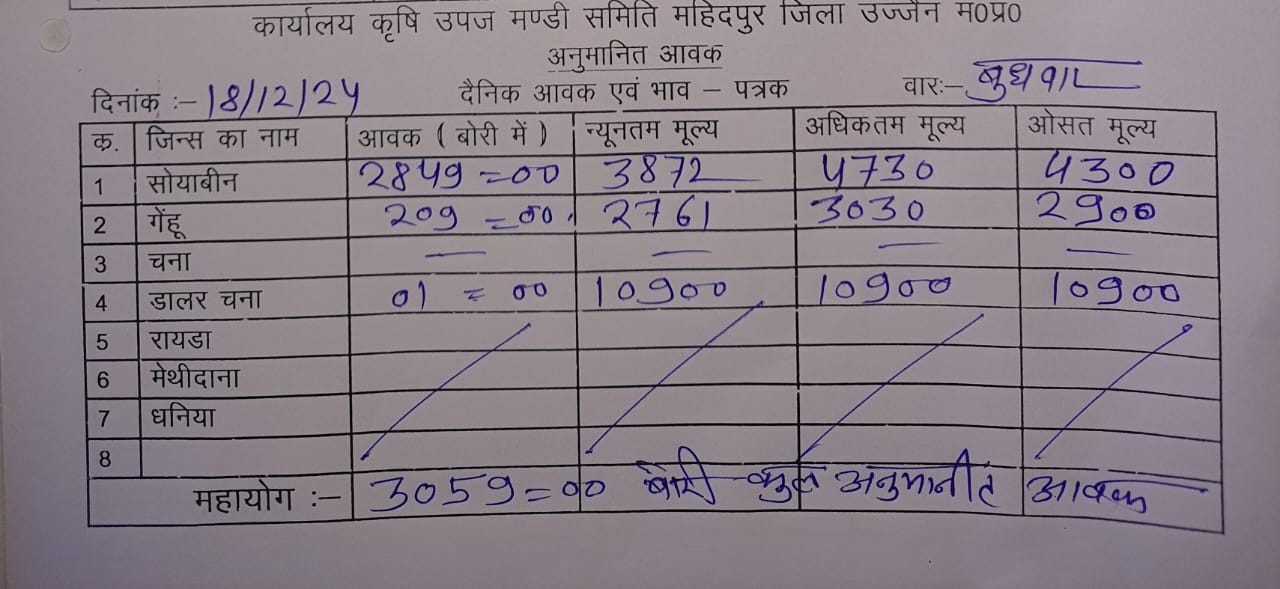 कार्यालय कृषि उपज मण्डी समिति महिदपुर जिला उज्जैन म0प्र0
अनुमानित आवक
दिनांक :- 18/12/24 दैनिक आवक एवं भाव – पत्रक वारः- बुधवार
क. जिन्स का नाम आवक ( बोरी में ) न्यूनतम मूल्य अधिकतम मूल्य ओसत मूल्य
1 सोयाबीन 2849=00 3872 4730 4300
2 गेंहू 209=00 2761 3030 2900
3 चना — — — —
4 डालर चना 01=00 10900 10900 10900
5 रायडा
6 मेथीदाना
7 धनिया
8
महायोग :- 3059=00 बोरी कुल अनुमानीत आवक